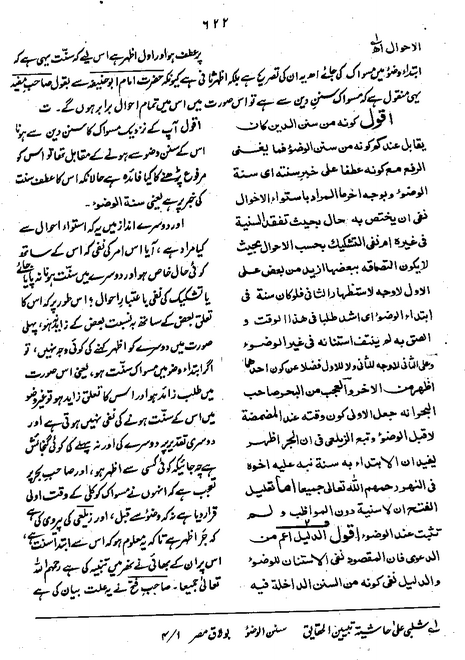 ٦٢٢
الاحوال اھ
پر عطف ہو اور اول اظہر ہے اس لیے کہ سنّت یہی ہے کہ
ابتداءِ وضو میں مسواک کی جائے اھ یہ ان کی تصریح ہے بلکہ اظہر ثانی ہے کیونکہ حضرت امام ابو حنیفہ سے بقول صاحب مفید
یہی منقول ہے کہ مسواک سننِ دین سے ہے تو اس صورت میں اس میں تمام احوال برابر ہوں گے۔ ت
اقول کونہ من سنن الدین کان
یقابل عندکم کونہ من سنن الوضوء فما یغنی
الرفع مع کونہ عطفا علی خبر سنتہ ای سنۃ
الوضوء وبوجہ اٰخر ما المراد باستواء الاحوال
نفی ان یختص بہ حال بحیث تفقد السنیۃ
فی غیرہ ام نفی التشکیک بحسب الاحوال بحیث
لایکون التصاقہ ببعضہا ازید من بعض علی
الاول لاوجہ لاستظہار الثانی فلو کان سنۃ فی
ابتداء الوضوء ای اشد طلبا فی ھذا الوقت و
الصق بہ لم ینتف استنانہ فی غیر الوضوء
وعلی الثانی لاوجہ للثانی ولا للاول فضلا عن کون احدھما
اظہر من الاٰخر والعجب من البحر صاحب
البحر انہ جعل الاولی کون وقتہ عند المضمضۃ
لاقبل الوضوء وتبع الزیلعی فی ان الجر اظہر
لیفید ان الابتداء بہ سنۃ نبہ علیہ اخوہ
فی النھر رحمہم اللہ تعالٰی جمیعا اما تعلیل
الفتح ان لاسنیۃ دون المواظبۃ ولم
تثبت عند الوضوء اقول الدلیل اعم من
الدعوی فان المقصود نفی الاستنان للوضوء
والدلیل نفی کونہ من السنن الداخلۃ فیہ
اقول آپ کے نزدیک مسواک کا سننِ دین سے ہونا
اس کے سننِ وضو سے ہونے کے مقابل تھا تو اس کو
مرفوع پڑھنے کا کیا فائدہ ہے حالانکہ اس کا عطف سنت
کی خبر پر ہے یعنی سنۃ الوضوء۔
اور دوسرے انداز میں یہ کہ استواء احوال سے
کیا مراد ہے، آیا اس امر کی نفی کہ اس کے ساتھ
کوئی حال خاص ہو اور دوسرے میں سنّت ہونا نہ پایا جائے
یا تشکیک کی نفی باعتبارِ احوال؟ اس طور پر کہ اس کا
تعلق بعض کے ساتھ بہ نسبت بعض کے زاید نہ ہو، پہلی
صورت میں دوسرے کو اظہر کہنے کی کوئی وجہ نہیں، تو
اگر ابتداءِ وضو میں مسواک سنّت ہو، یعنی اس صورت
میں طلب زائد ہو اور اس کا تعلق زاید ہو تو غیر وضو
میں اس کے سنّت ہونے کی نفی نہیں ہوتی ہے اور
دوسری تقدیر پر دوسرے کی اور نہ پہلے کی کوئی گنجائش
ہے چہ جائیکہ کوئی کسی سے اظہر ہو، اور صاحبِ بحر پر
تعجب ہے کہ انہوں نے مسواک کو کلی کے وقت اولیٰ
قرار دیا ہے نہ کہ وضو سے قبل، اور زیلعی کی پیروی کی ہے
کہ جَر اظہر ہے تاکہ یہ معلوم ہو کہ اس سے ابتداء سنّت ہے،
اس پر ان کے بھائی نے نھر میں تنبیہ کی ہے رحمہم اللہ
تعالٰی جمیعا۔ صاحبِ فتح نے یہ علت بیان کی ہے
لے شلبی علٰی حاشیۃ تبیین الحقایق سنن الوضوء بولاق مصر ۱/۴